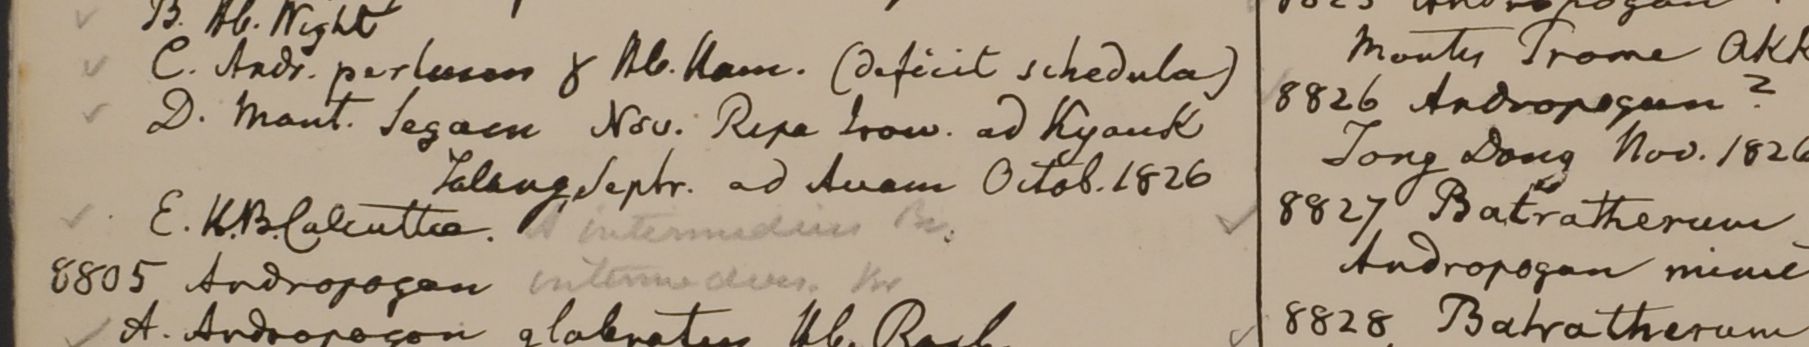 B. Hb. Wight
C. Andr. pertusus γ Hb. Ham. (deficit schedula)
D. Mont. Segaen Nov. Ripa Irow. ad Kyouk
Talang, Septr. ad Avam Octob. 1826
E. H.B. Calcutta. A intermedius Br.
8805 Andropogon intermedius. Br
A. Andropogon glabratus Hb. Roxb.
8825 Andropogon
Montis Trome
8826 Andropogon ?
Tong Dong Nov. 1826
8827 Batratherum
Andropogon
8828 Batratherum